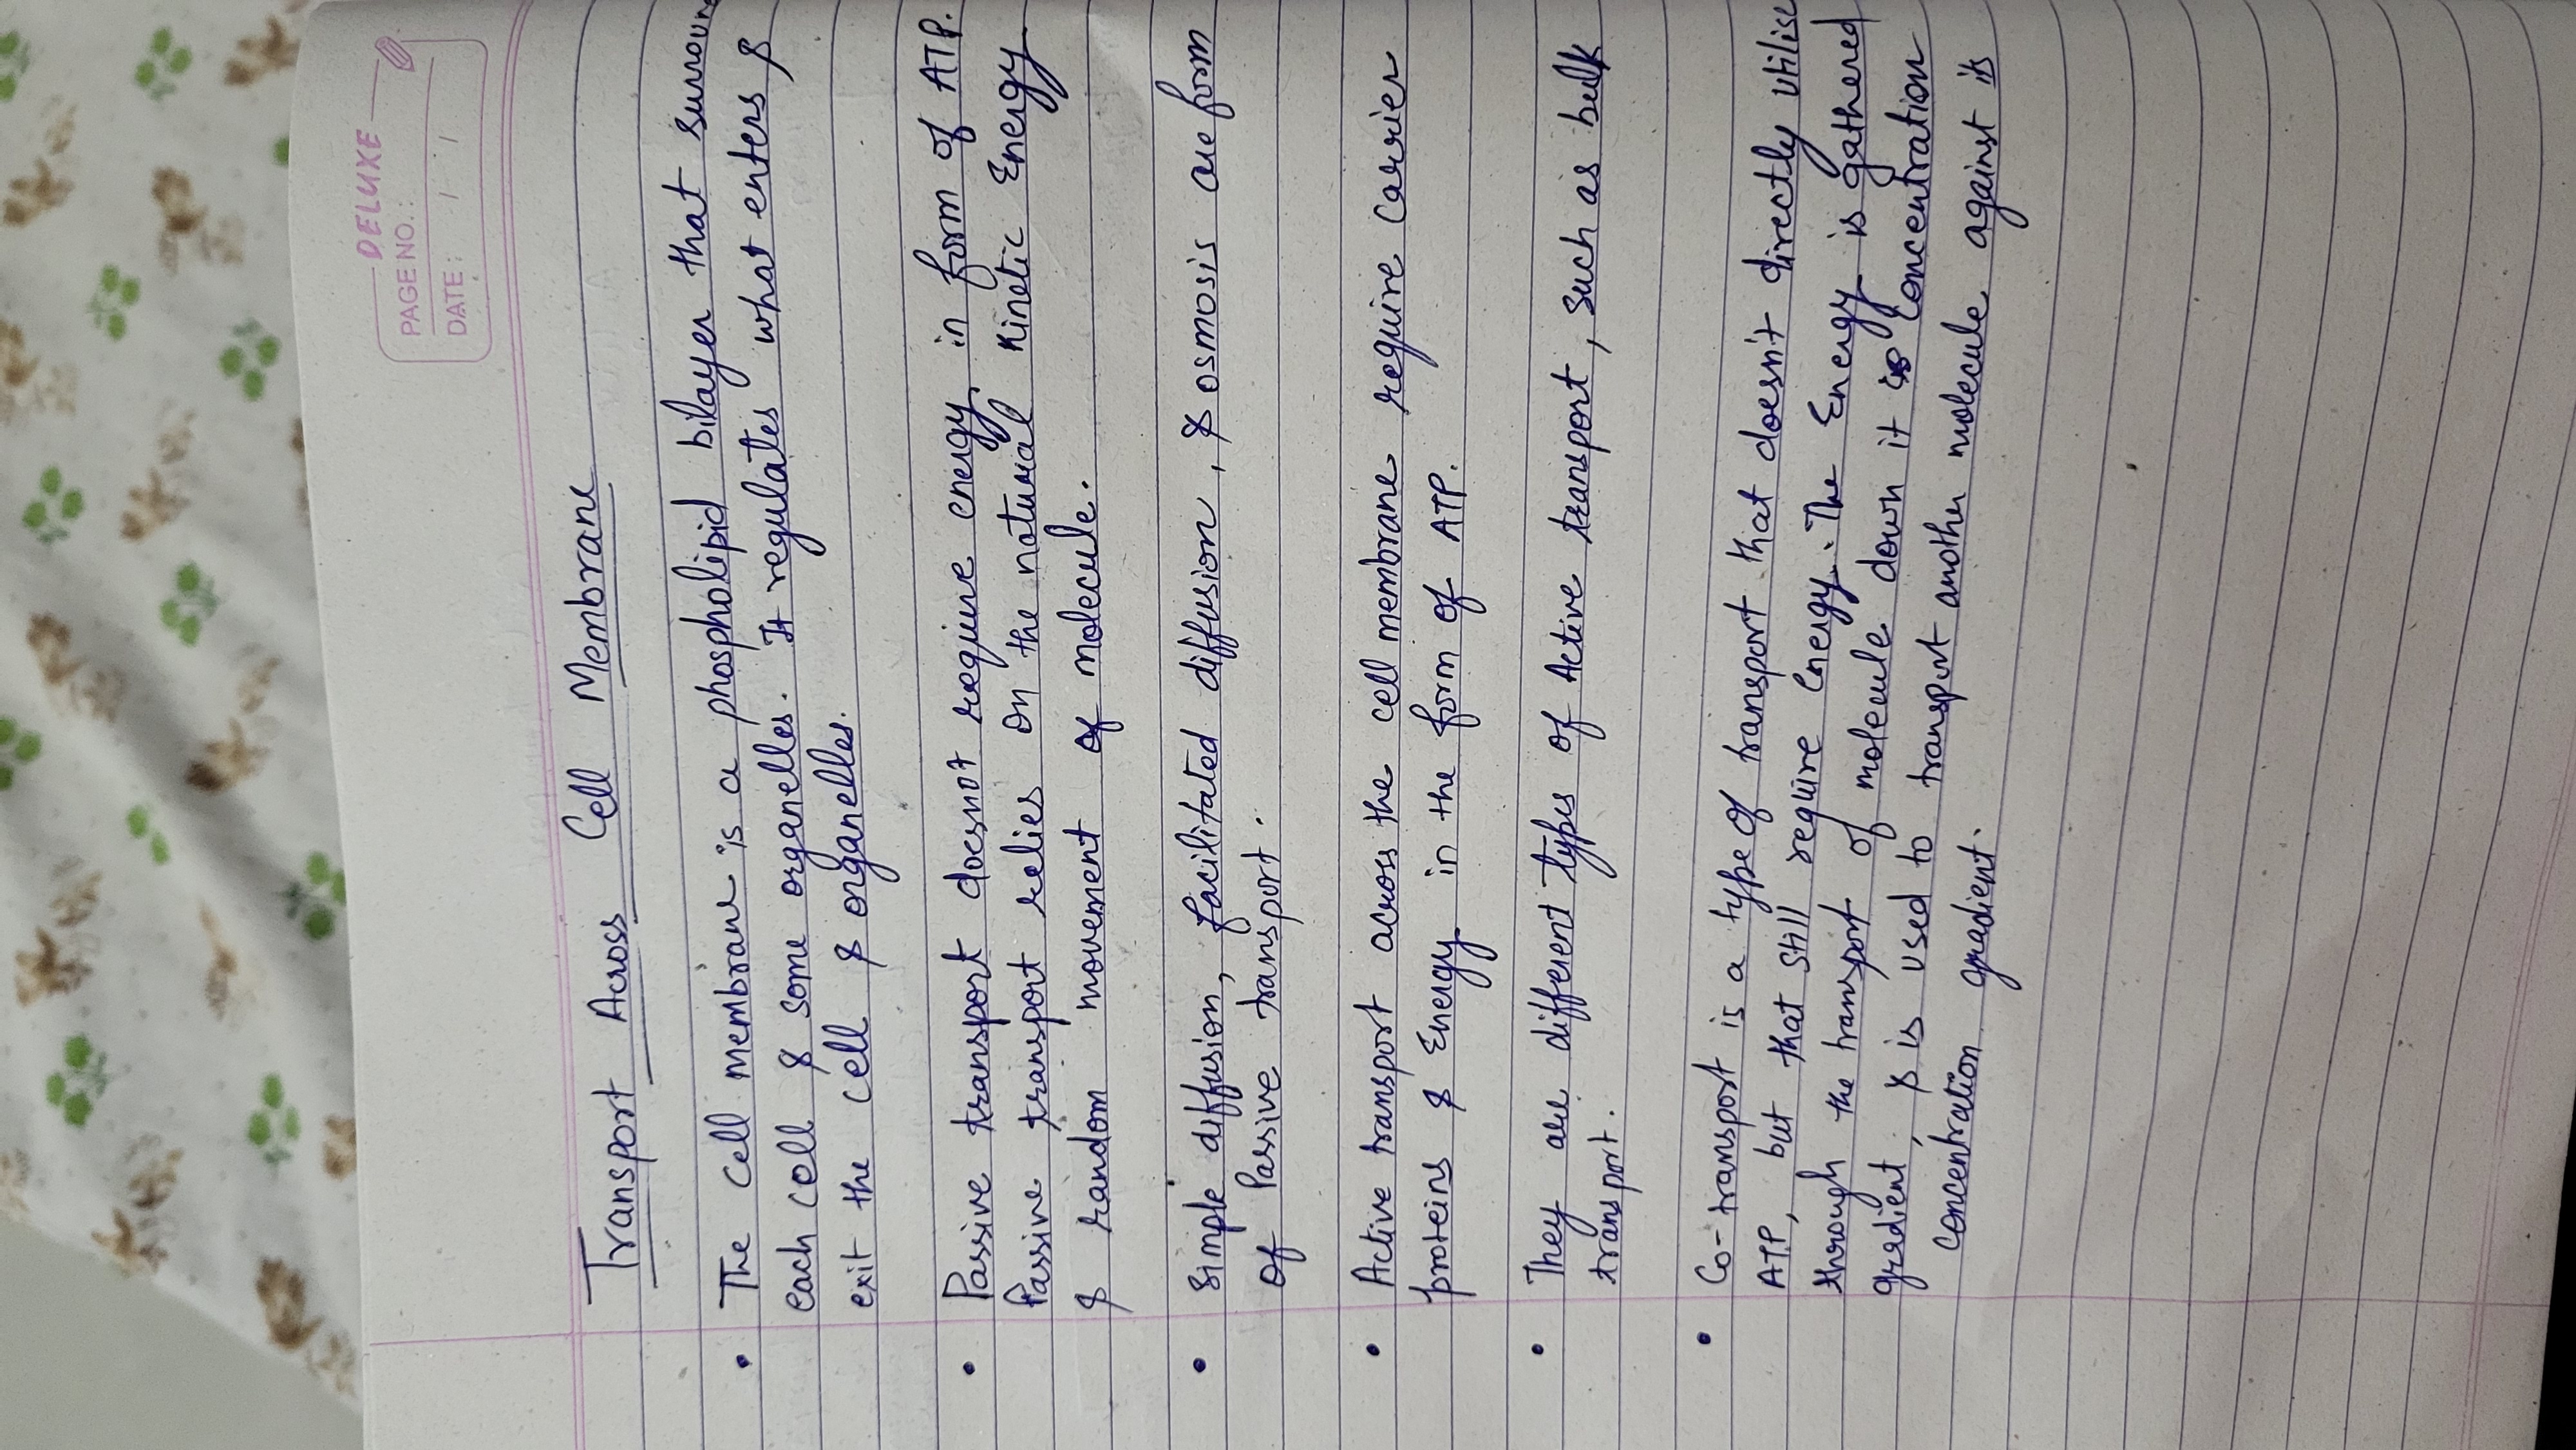 DELUXE
PAGE NO. :
DATE : / /
Transport Across Cell Membrane
• The cell membrane is a phospholipid bilayer that surroun
each cell & some organelles. It regulates what enters &
exit the cell & organelles.
• Passive transport doesnot require energy in form of ATP.
Passive transport relies on the natural Kinetic Energy
& random movement of molecule.
• Simple diffusion, facilitated diffusion, & osmosis are form
of Passive transport.
• Active transport across the cell membrane require carrier
proteins & Energy in the form of ATP.
• They are different types of Active transport, such as bulk
transport.
• Co-transport is a type of transport that doesn't directly utilise
ATP, but that still require energy. The Energy is gathered
through the transport of molecule down it is concentration
gradient, & is used to transport another molecule against its
concentration gradient.